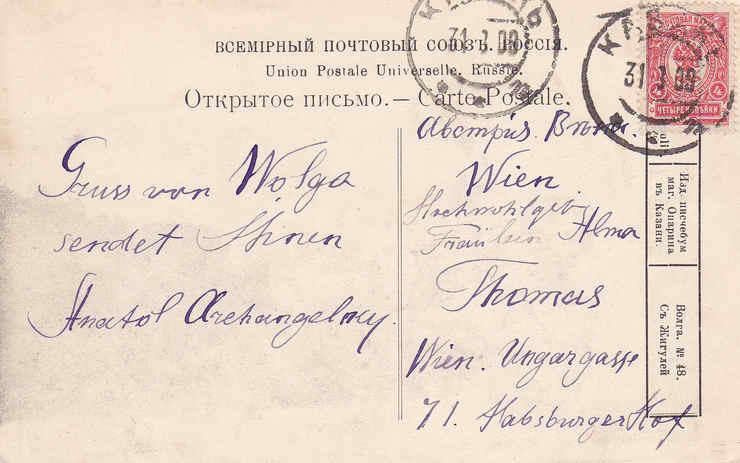 ВСЕМІРНЫЙ ПОЧТОВЫЙ СОЮЗЪ. РОССІЯ.
Union Postale Universelle. Russie.
Открытое письмо. — Carte Postale.
Gruss von Wolga
sendet Ihnen
Anatol Archangelsky.
Австрія. Вѣна.
Wien.
Hochwohlgeb.
Fräulein Alma
Thomas
Wien. Ungargasse
71. Habsburger Hof
31 08
31 08
4 4
ЧЕТЫРЕ КОПѢЙКИ
Изд. писчебум
маг. Опарина
въ Казани.
Волга. № 48.
Съ Жигулей